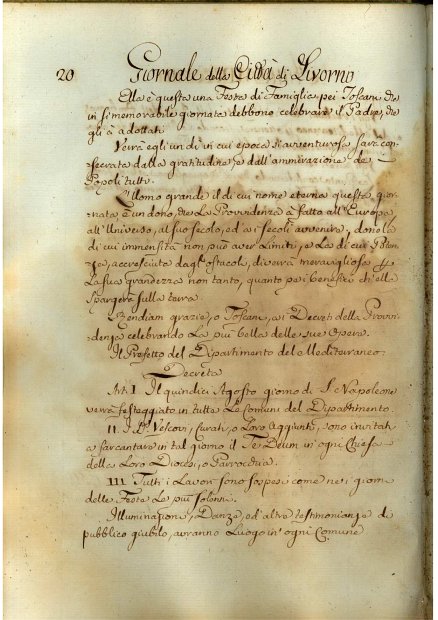 20 Giornale della Città di Livorno
Ella è questa una Festa di Famiglia pei Toscani, che
in sì memorabile giornata debbono celebrare il Padre, che
gli à adottati.
Verrà egli un dì in cui epoca sì avventurosa sarà con-
secrata dalla gratitudine e dall'ammirazione de
Popoli tutti.
L'Uomo grande il di cui nome eterna questa gior-
nata è un dono, che La Provvidenza à fatto all'Europa
all'Universo, al suo secolo, ed a i secoli avvenire, dono la
di cui immensità non può aver Limiti, e La di cui Poten-
za, accresciuta dagl'ostacoli, diverrà meravigliosa
La sua grandezza non tanto, quanto pei benefici ch'ella
spargerà sulla terra.
Rendiam grazie, o Toscani, ai Decreti della Provvi-
denza celebrando La più bella delle sue Opere.
Il Prefetto del Dipartimento del Mediterraneo.
Decreta
Art. I Il quindici Agosto giorno di S. Napoleone
verrà festeggiato in tutte Le Comuni del Dipartimento.
II I Vescovi, Curati, o Loro Aggiunti, sono invitati
a far cantare in tal giorno il Te Deum in ogni Chiesa
della Loro Diocesi, o Parrocchia.
III Tutti i Lavori sono sospesi come nei giorni
delle Feste Le più solenni.
Illuminazioni, Danze, ed altre testimonianze di
pubblico giubilo, avranno Luogo in ogni Comune